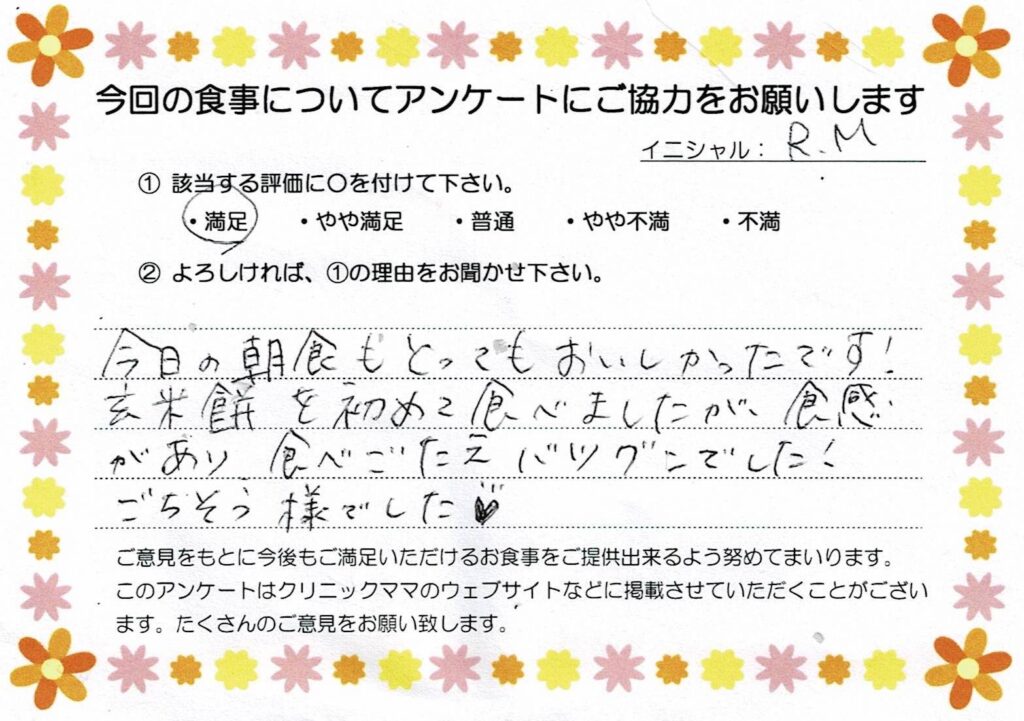 今回の食事についてアンケートにご協力をお願いします
イニシャル： R.M
① 該当する評価に〇を付けて下さい。
・満足 ・やや満足 ・普通 ・やや不満 ・不満
② よろしければ、①の理由をお聞かせ下さい。
今日の朝食もとってもおいしかったです！
玄米餅を初めて食べましたが、食感
があり食べごたえバツグンでした！
ごちそう様でした♥
ご意見をもとに今後もご満足いただけるお食事をご提供出来るよう努めてまいります。
このアンケートはクリニックママのウェブサイトなどに掲載させていただくことがござい
ます。たくさんのご意見をお願い致します。